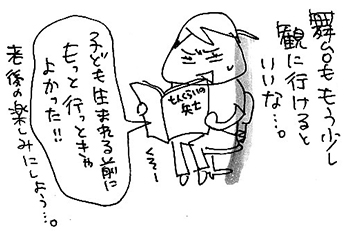 舞台ももう少し
観に行けると
いいな…。
もんくらいの
兵士
くそー
子ども生まれる前に
もっと行っときゃ
よかった!!
老後の楽しみにしよう…。